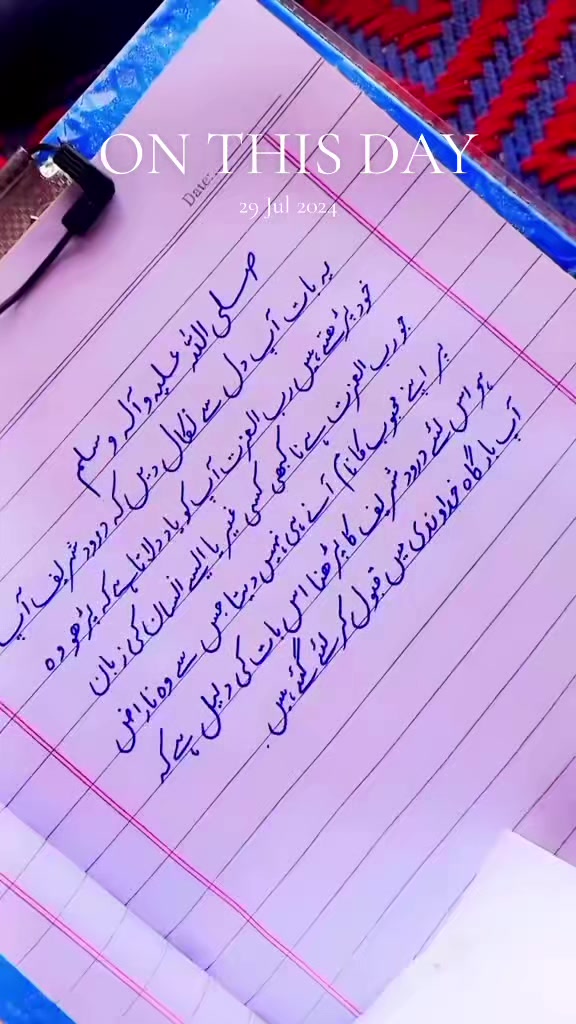 ON THIS DAY
29 Jul 2024
Date:
صلی اللہ علیہ وآلہ وسلم
یہ بات آپ دل سے نکال دیں کہ درود شریف آپ
خود پڑھتے ہیں رب العزت آپ کو یاد دلاتا ہے کہ پڑھو وہ
جو رب العزت ہے نا کبھی کسی غیر یا ایسے انسان کی زبان
پر اپنے محبوب کا نام آنے ہی نہیں دیتا جس سے وہ ناراض
ہو اس لئے درود شریف کا پڑھنا اس بات کی دلیل ہے کہ
آپ بارگاہ خداوندی میں قبول کر لئے گئے ہیں.